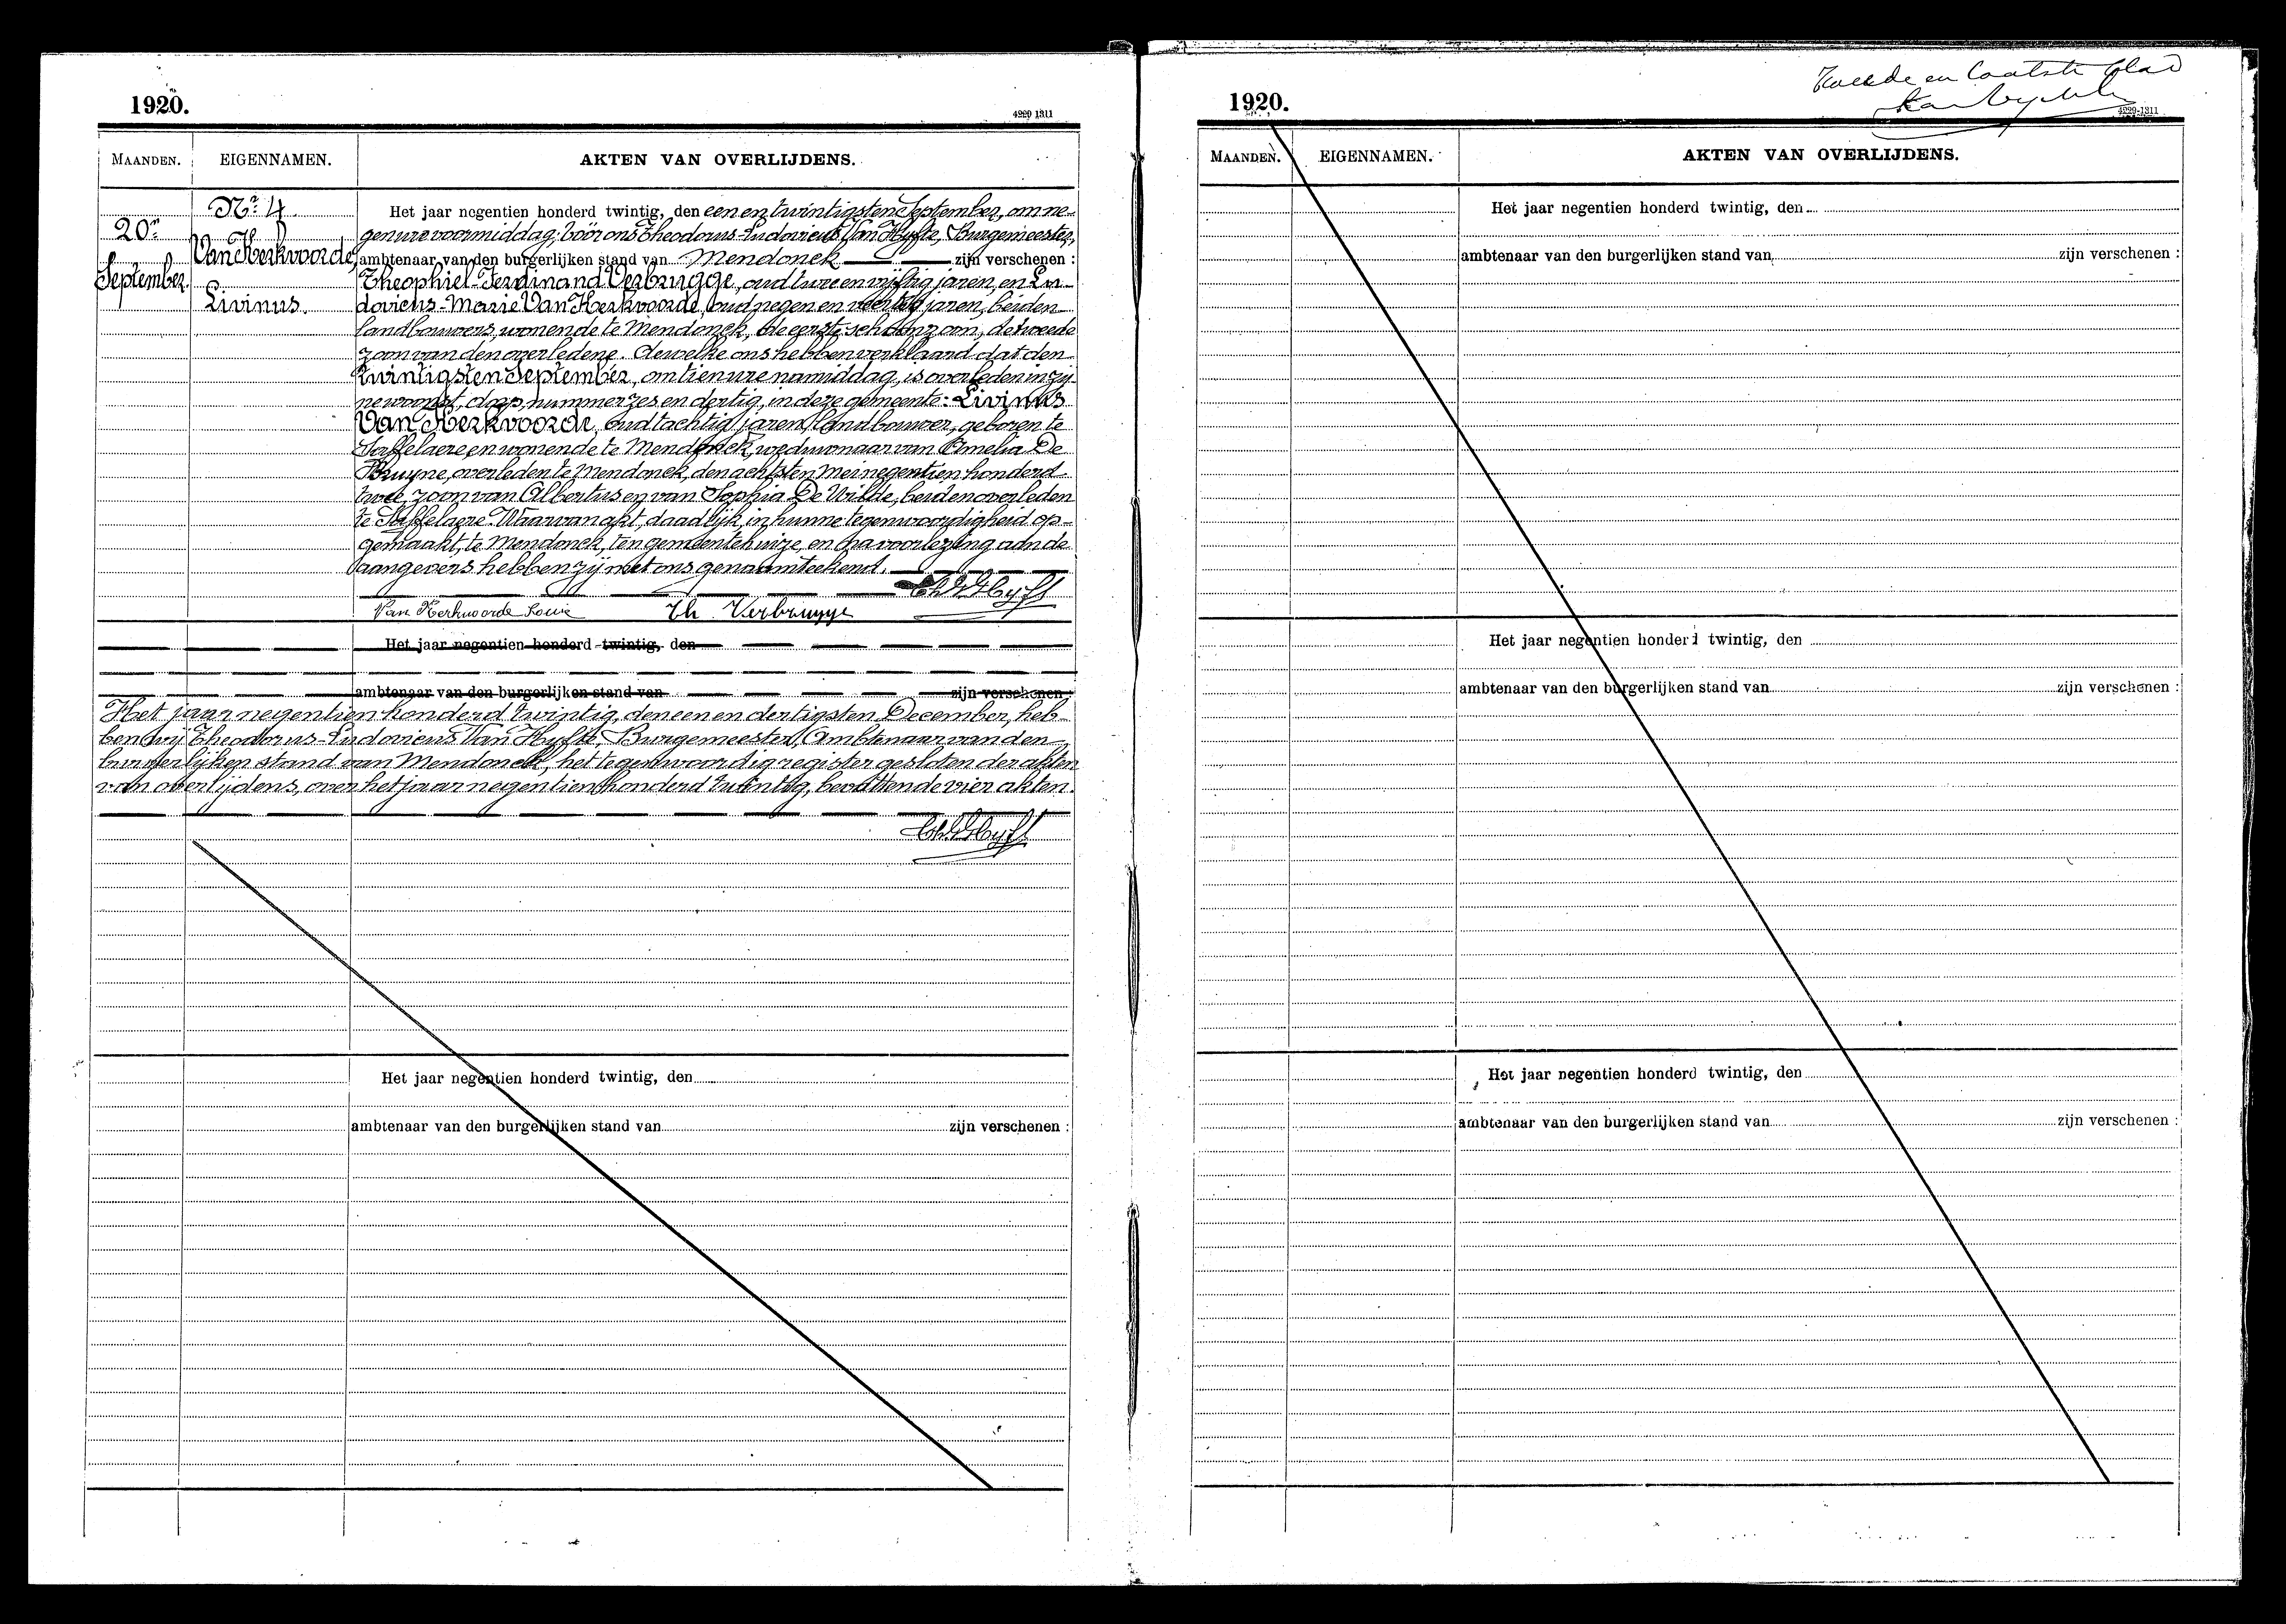 1920.
4229 1311
MAANDEN.
EIGENNAMEN.
AKTEN VAN OVERLIJDENS.
20n
September
No 4
Van Herkvoorde,
Livinus.
Het jaar negentien honderd twintig, den een en twintigsten September, om ne-
gen ure voormiddag; vóór ons Theodorus-Ludovicus Van Hyfte, Burgemeester,
ambtenaar van den burgerlijken stand van Mendonck zijn verschenen :
Theophiel-Ferdinand Verbrugge, oud twee en vijftig jaren, en Lu-
dovicus-Marie Van Herkvoorde, oud negen en veertig jaren, beiden
landbouwers, wonende te Mendonck, de eerste schoonzoon, de tweede
zoon van den overledene. dewelke ons hebben verklaard dat den
twintigsten September, om tien ure namiddag, is overleden in zij-
ne woonst, dorp, nummer zes en dertig, in deze gemeente: Livinus
Van Herkvoorde, oud tachtig jaren, landbouwer, geboren te
Saffelaere en wonende te Mendonck, weduwnaar van Amelia De
Bruyne, overleden te Mendonck, den achtsten Mei negentien honderd
twee, zoon van Albertus en van Sophia De Wilde, beiden overleden
te Saffelaere. Waarvan akt, daadlijk, in hunne tegenwoordigheid op-
gemaakt, te Mendonck, ten gemeentehuize, en na voorlezing aan de
aangevers hebben zij met ons genaamteekend.
Van Herkvoorde Louis Th Verbrugge Th V Hyft
Het jaar negentien honderd twintig, den
ambtenaar van den burgerlijken stand van zijn verschenen :
Het jaar negentien honderd twintig, den een en dertigsten December, heb-
ben wij Theodorus-Ludovicus Van Hyfte, Burgemeester, Ambtenaar van den
burgerlijken stand van Mendonck, het tegenwoordig register gesloten der akten
van overlijdens, over het jaar negentien honderd twintig, bevattende vier akten.
Th V Hyft
Het jaar negentien honderd twintig, den
ambtenaar van den burgerlijken stand van zijn verschenen :
Tweede en laatste blad
1920.
4229-1311
MAANDEN.
EIGENNAMEN.
AKTEN VAN OVERLIJDENS.
Het jaar negentien honderd twintig, den
ambtenaar van den burgerlijken stand van zijn verschenen :
Het jaar negentien honderd twintig, den
ambtenaar van den burgerlijken stand van zijn verschenen :
Het jaar negentien honderd twintig, den
ambtenaar van den burgerlijken stand van zijn verschenen :